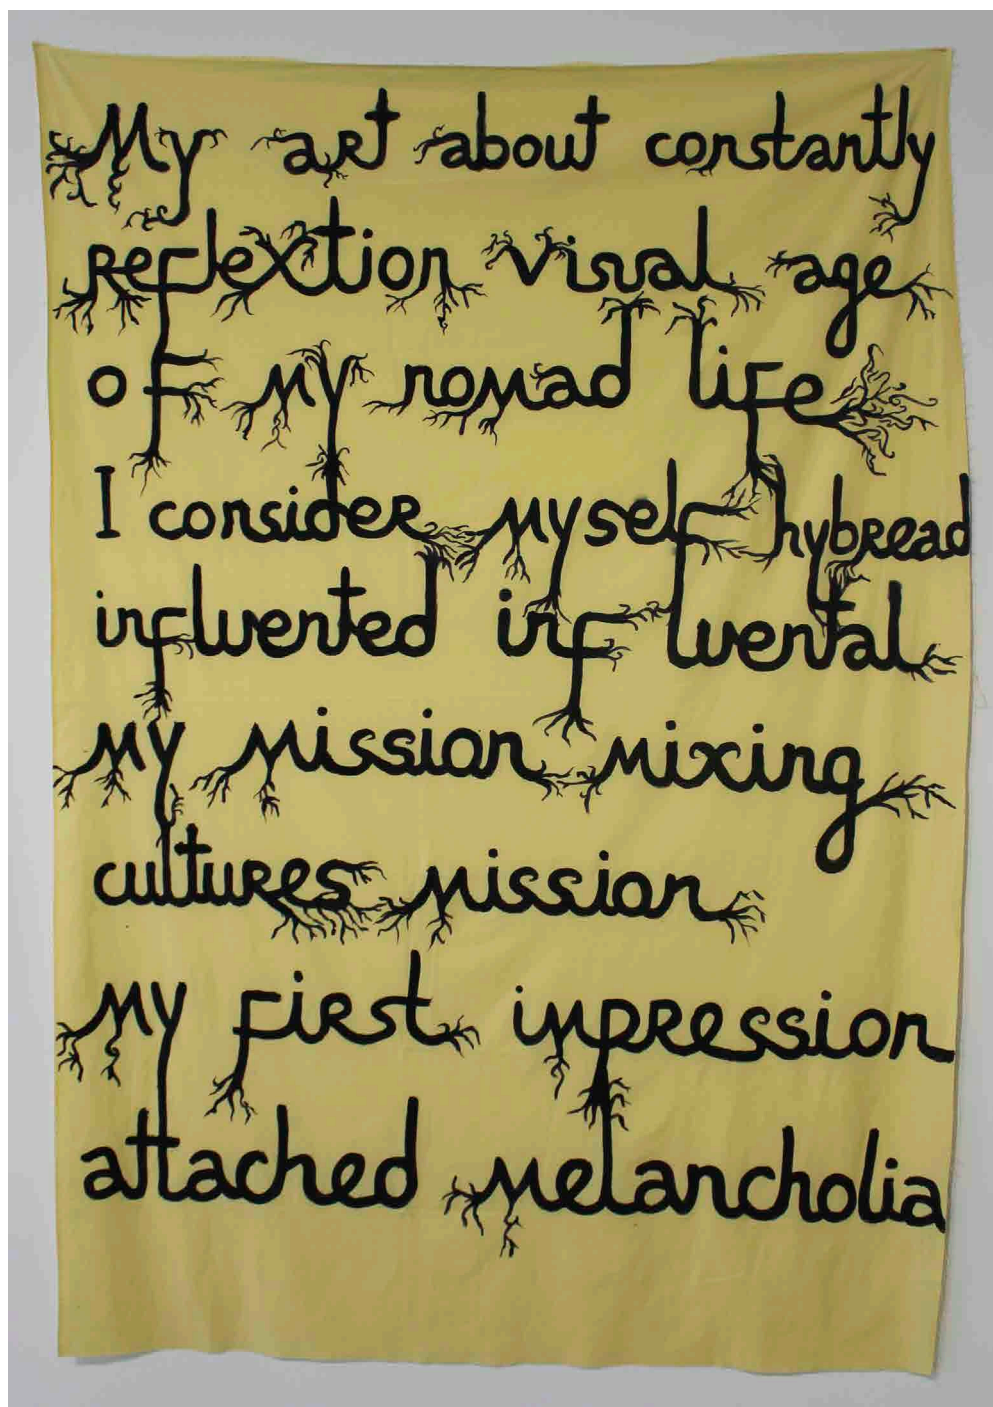 My art about constantly
reflextion visual age
of my nomad life
I consider myself hybread
influented influental
my mission mixing
cultures mission
my first impression
attached melancholia